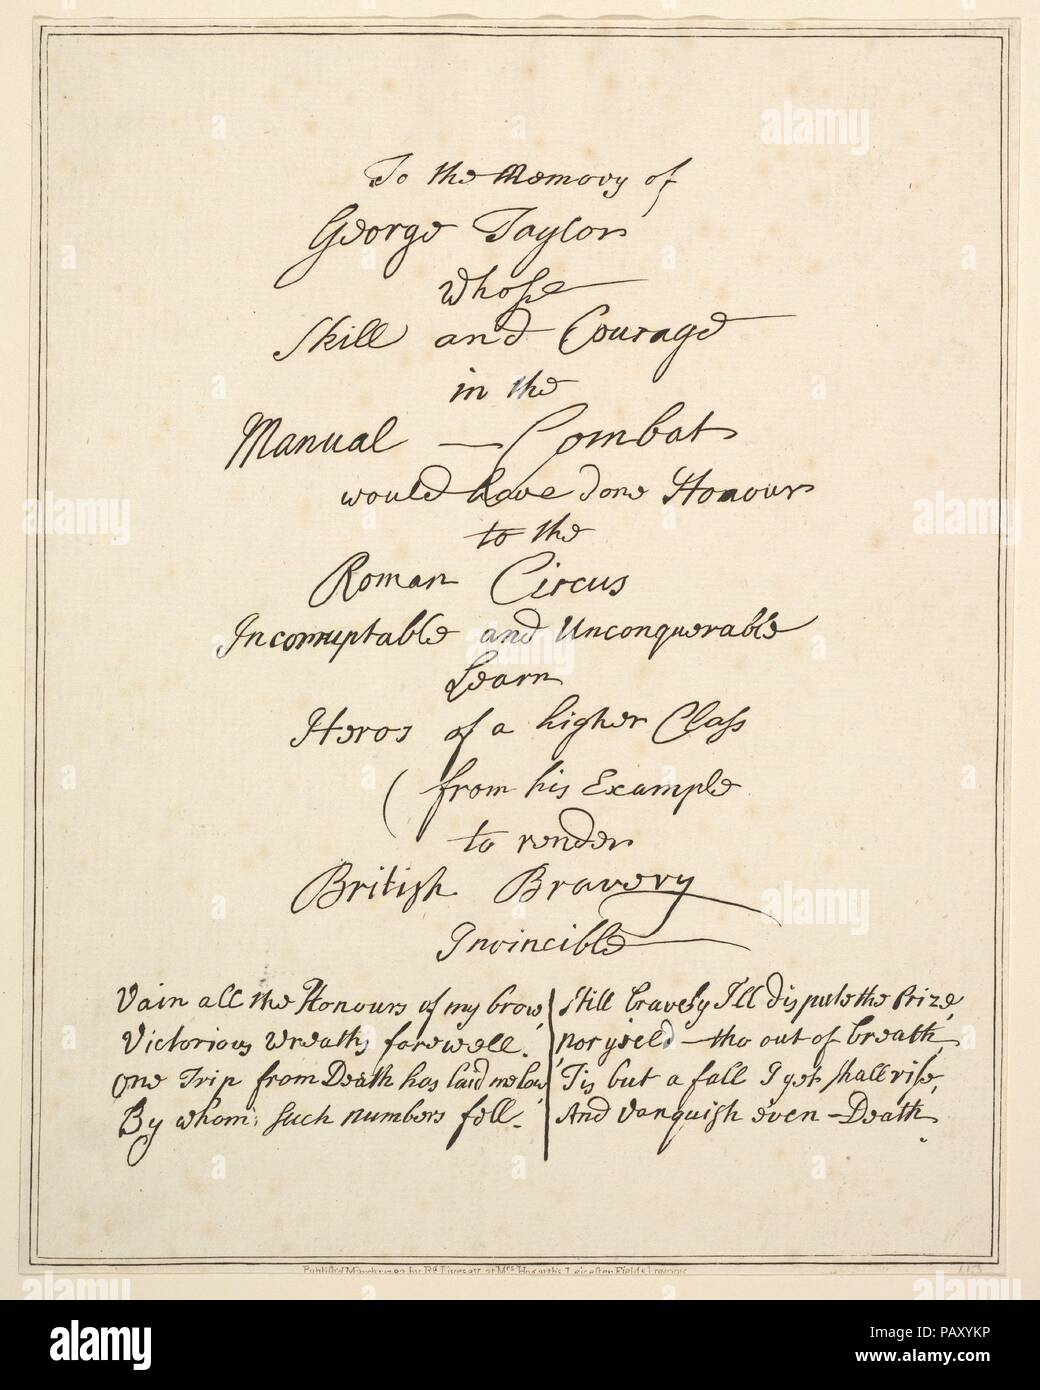 To the Memory of
George Taylor
whoſe
Skill and Courage
in the
Manual — Combat
would have done Honour
to the
Roman Circus
Incorruptable and Unconquerable
Learn
Heros of a higher Claſs
(from his Example
to render
Britiſh Bravery
Invincible
Vain all the Honours of my brow,
Victorious Wreaths farewell.
One Trip from Death has laid me low
By whom such numbers fell.
Still bravely I'll dispute the Prize,
nor yield — tho out of breath,
'Tis but a fall I yet ſhall riſe,
And Vanquiſh even — Death.
Publiſh'd March by Rd. Liveſay at Mrs. Hogarth's Leiceſter Fields London
113
alamy
Image ID: PAXYKP
www.alamy.com